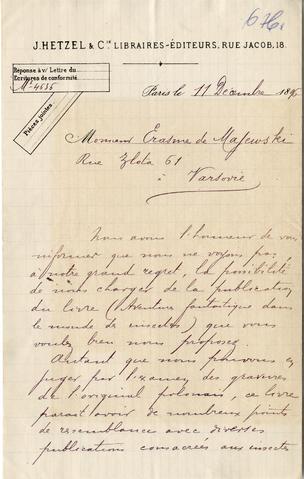 676.
J. HETZEL & Cie LIBRAIRES-ÉDITEURS, RUE JACOB, 18.
Réponse à v/ Lettre du
Écritures de conformité
No 4636
Pièces jointes
Paris le 11 Décembre 189
Monsieur Erasme de Majewski
Rue Zlota 61
à Varsovie
Nous avons l'honneur de vous
informer que nous ne voyons pas
à notre grand regret, la possibilité
de nous charger de la publication
du livre (l'Aventure fantastique dans
le monde des insectes) que vous
voulez bien nous proposer.
Autant que nous pouvons en
juger par l'examen des gravures
de l'original polonais, ce livre
paraît avoir de nombreux points
de ressemblance avec diverses
publications consacrées aux insectes